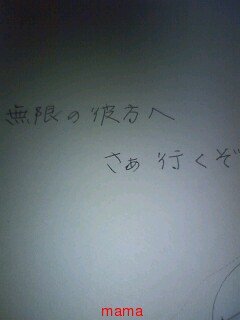 無限の彼方へ
さぁ行くぞ
mama